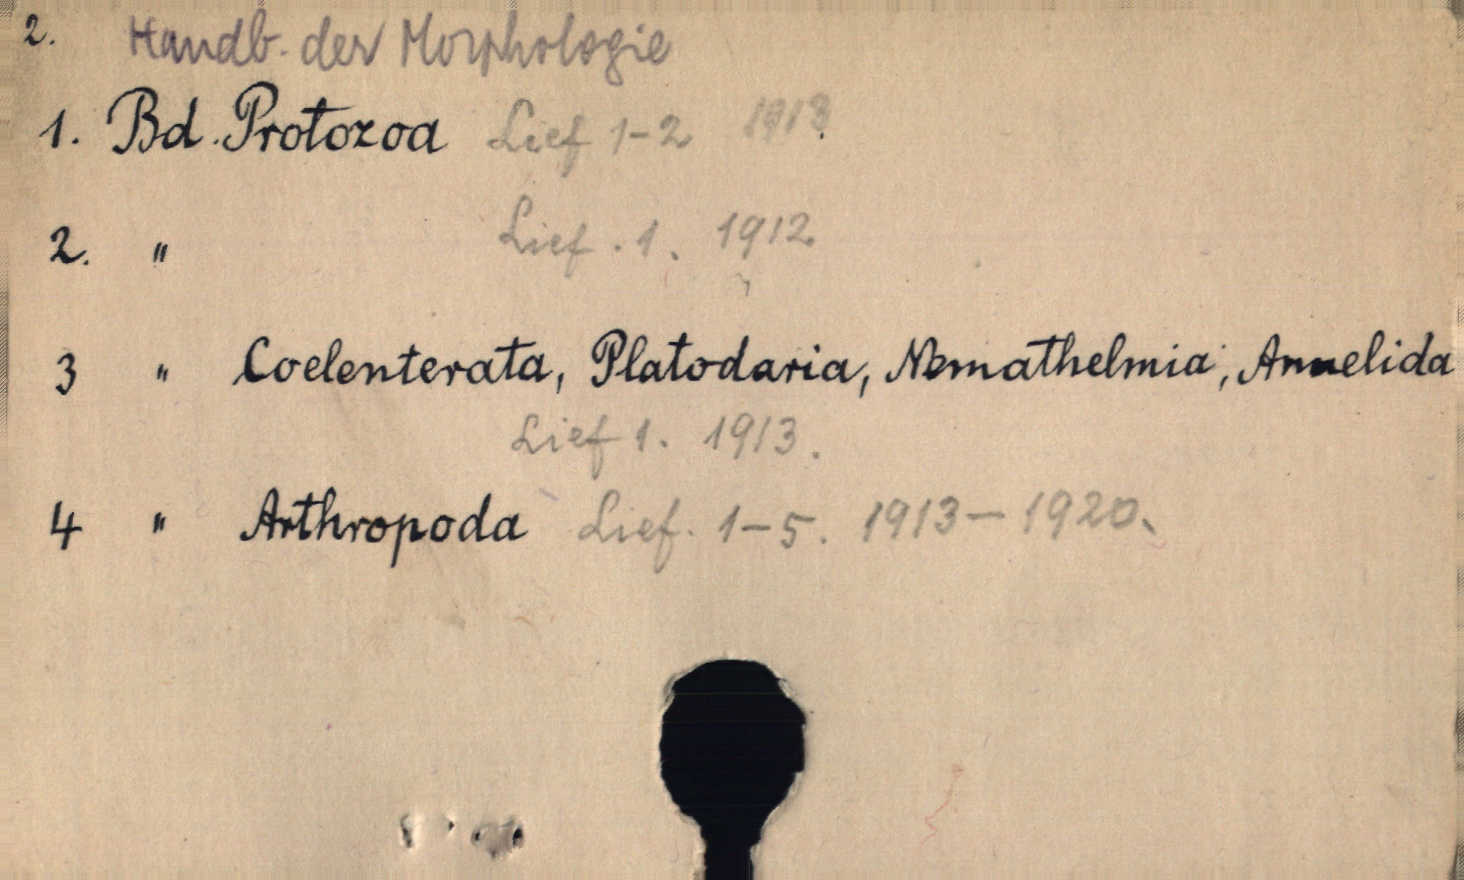 2. Handb. der Morphologie
1. Bd. Protozoa Lief 1-2 1913
2. " Lief. 1. 1912
3 " Coelenterata, Platodaria, Nemathelmia, Annelida
Lief 1. 1913.
4 " Arthropoda Lief. 1-5. 1913-1920.